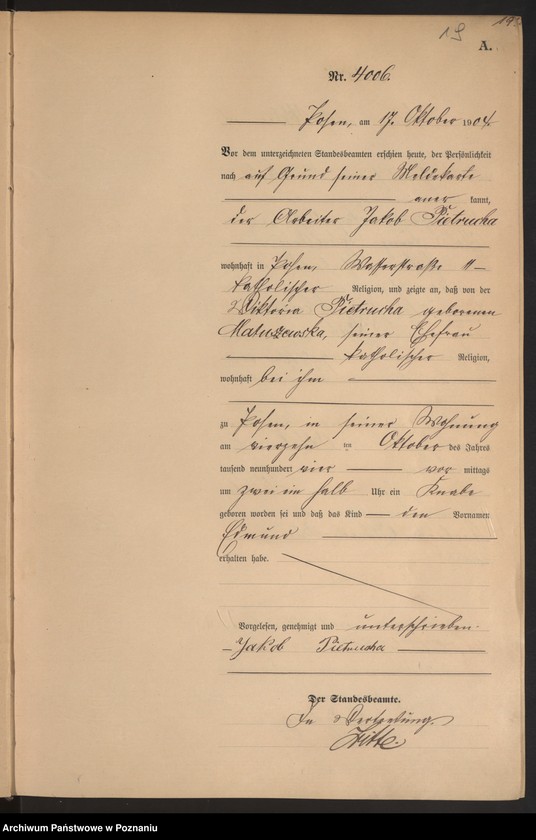 19
193
A.
Nr. 4006.
Posen, am 17. Oktober 1904.
Vor dem unterzeichneten Standesbeamten erschien heute, der Persönlichkeit
nach auf Grund seiner Meldekarte
aner kannt,
der Arbeiter Jakob Pietrucha
wohnhaft in Posen, Wasserstraße 11
katholischer Religion, und zeigte an, daß von der
Viktoria Pietrucha geborenen
Matuszewska, seiner Ehefrau
katholischer Religion,
wohnhaft bei ihm
zu Posen, in seiner Wohnung
am vierzehn ten Oktober des Jahres
tausend neunhundert vier vor mittags
um zwei ein halb Uhr ein Knabe
geboren worden sei und daß das Kind den Vornamen
Edmund
erhalten habe.
Vorgelesen, genehmigt und unterschrieben.
Jakob Pietrucha
Der Standesbeamte.
In Vertretung.
Witte.
Archiwum Państwowe w Poznaniu